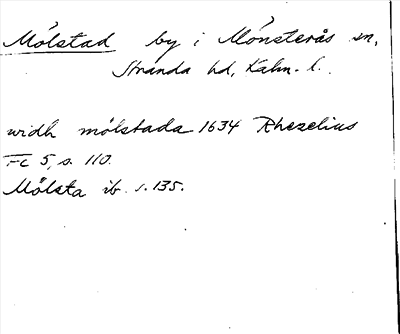 Mölstad by i Mönsterås sn,
Stranda hd, Kalm. l.
widh mölstada 1634 Rhezelius
Fc 5, s. 110.
Mölsta ib. s. 135.